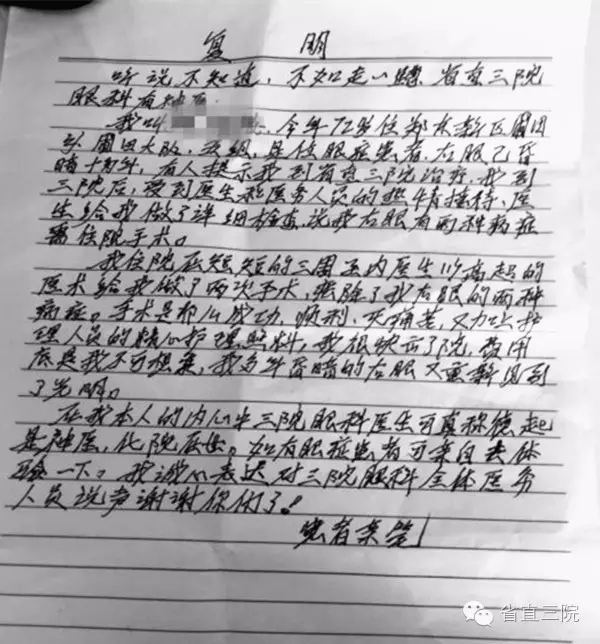 复 明
听说不知道,不如走一趟,省直三院
眼科有神医.
我叫 今年72岁住郑东新区圃田
乡圃田大队, 是位眼症患者,右眼已昏
暗十多年,有人提示我到省直三院治疗,我到
三院后,受到医生和医务人员的热情接待,医
生给我做了详细检查,说我右眼有两种病症
需住院手术。
我住院在短短的三周之内医生以高超的
医术给我做了两次手术,摘除了我右眼的两种
病症。手术是那么成功,顺利,无痛苦,又加上护
理人员的精心护理照料,我很快出了院,费用
底是我不可想象,我多年昏暗的右眼又重新见到
了光明。
在我本人的内心中三院眼科医生可真称得起
是神医,化院在世。如有眼症患者可亲自去体
验一下。我诚心表达对三院眼科全体医务
人员说声谢谢你们了!
患者亲笔
省直三院